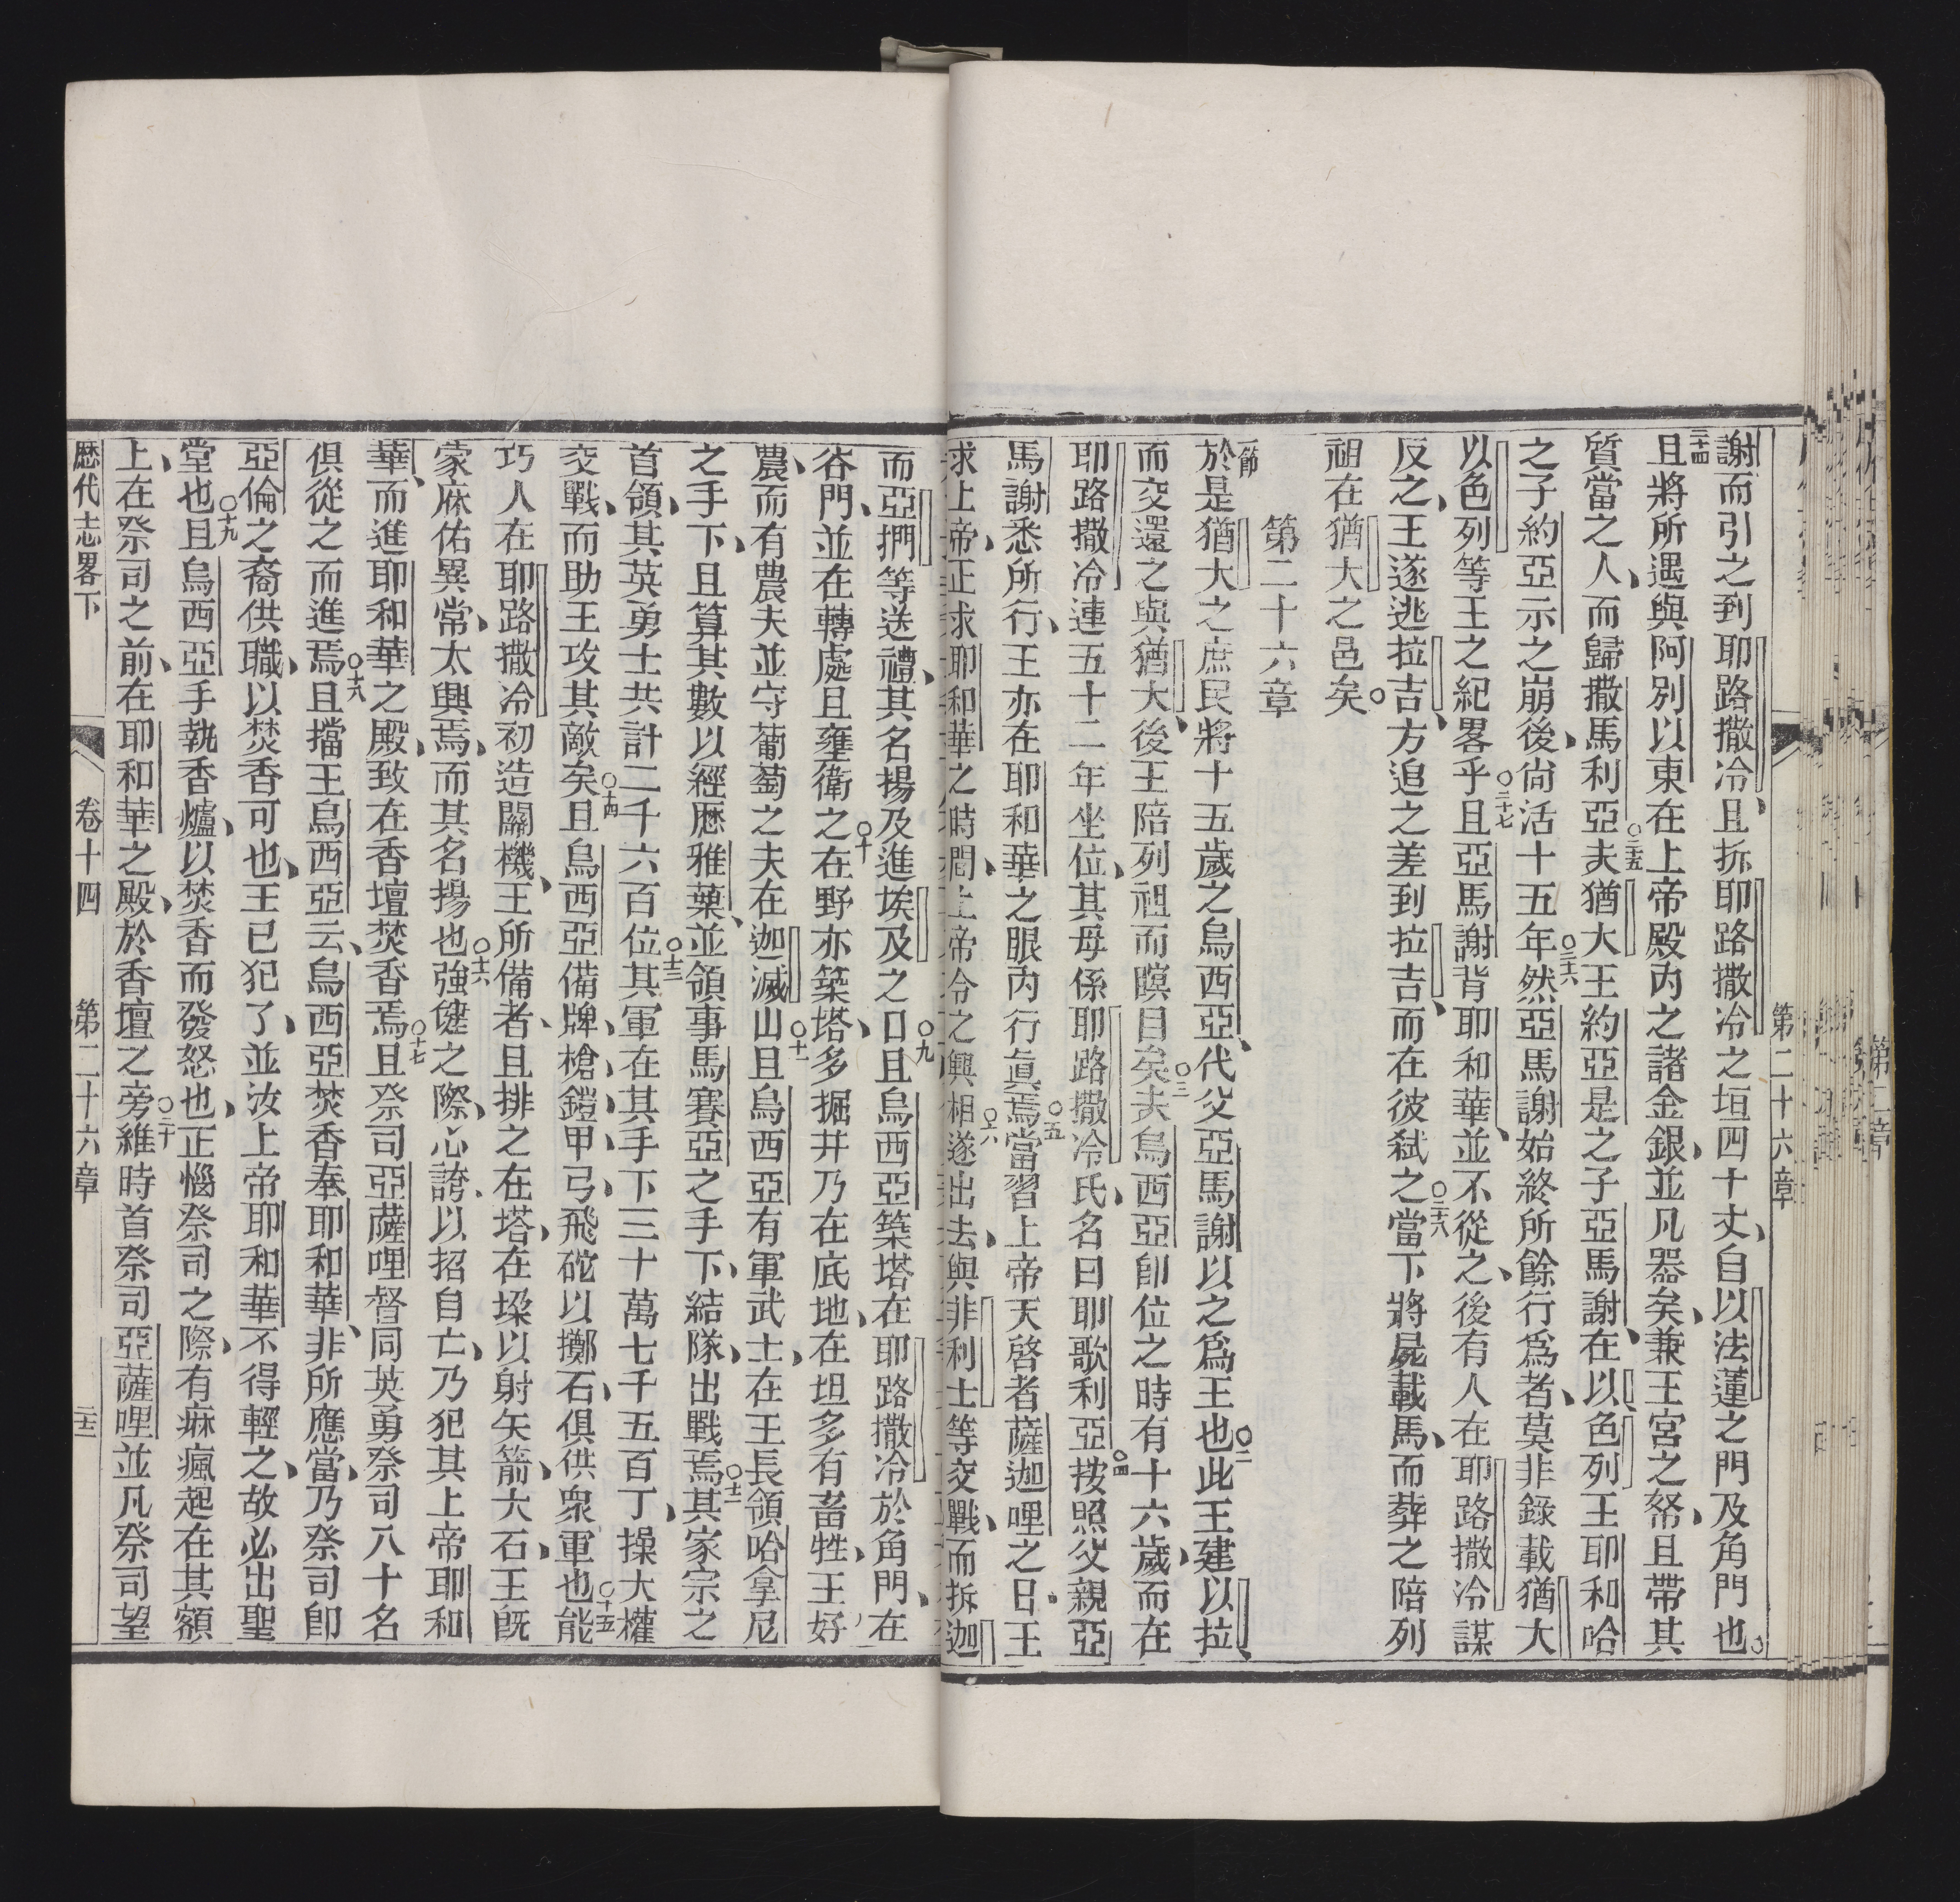 第二十六章
謝而引之到耶路撒冷、且拆耶路撒冷之垣四十丈、自以法蓮之門及角門也。
○二十四且將所遇與阿別以東在上帝殿內之諸金銀、並凡器矣、兼王宮之帑、且帶其
質當之人、而歸撒馬利亞○二十五夫猶大王約亞是之子亞馬謝、在以色列王耶和哈
之子約亞示之崩後、尙活十五年○二十六然亞馬謝始終所餘行爲者、莫非錄載猶大
以色列等王之紀畧乎○二十七且亞馬謝背耶和華、並不從之、後有人在耶路撒冷謀
反之、王遂逃拉吉、方追之差到拉吉、而在彼弒之○二十八當下將屍載馬、而葬之陪列
祖在猶大之邑矣。
第二十六章
一節於是猶大之庶民將十五歲之烏西亞、代父亞馬謝以之爲王也○二此王建以拉、
而交還之與猶大、後王陪列祖而瞑目矣○三夫烏西亞卽位之時有十六歲、而在
耶路撒冷連五十二年坐位、其母係耶路撒冷氏、名曰耶歌利亞○四按照父親亞
馬謝悉所行、王亦在耶和華之眼內行眞焉○五當習上帝天啓者薩迦哩之日、王
求上帝、正求耶和華之時間、上帝令之興相遂○六出去、與非利士等交戰、而拆迦
而亞捫等送禮、其名揚及進埃及之口○九且烏西亞築塔在耶路撒冷於角門、在
谷門、並在轉處且壅衛之○十在野亦築塔、多掘井乃在底地、在坦多有畜牲、王好
農、而有農夫並守葡萄之夫在迦滅山○十一且烏西亞有軍武士、在王長領哈拿尼
之手下、且算其數以經歷雅葉、並領事馬賽亞之手下、結隊、出戰焉○十二其家宗之
首領、其英勇士共計二千六百位○十三其軍在其手下三十萬七千五百丁、操大權
交戰、而助王攻其敵矣○十四且烏西亞備牌、槍、鎧、甲、弓、飛砣以擲石、俱供衆軍也○十五能
巧人在耶路撒冷初造關機、王所備者、且排之在塔、在垛以射矢箭、大石、王旣
蒙庥佑異常、太興焉、而其名揚也○十六強健之際、心誇、以招自亡、乃犯其上帝耶和
華、而進耶和華之殿、致在香壇焚香焉○十七且祭司亞薩哩督同英勇祭司八十名
俱從之而進焉○十八且擋王烏西亞云、烏西亞焚香奉耶和華、非所應當、乃祭司卽
亞倫之裔供職、以焚香可也、王已犯了、並汝上帝耶和華不得輕之、故必出聖
堂也○十九且烏西亞手執香爐、以焚香而發怒也、正惱祭司之際、有痳瘋起在其額
上、在祭司之前、在耶和華之殿、於香壇之旁○二十維時首祭司亞薩哩並凡祭司望
歷代志畧下 卷十四 第二十六章